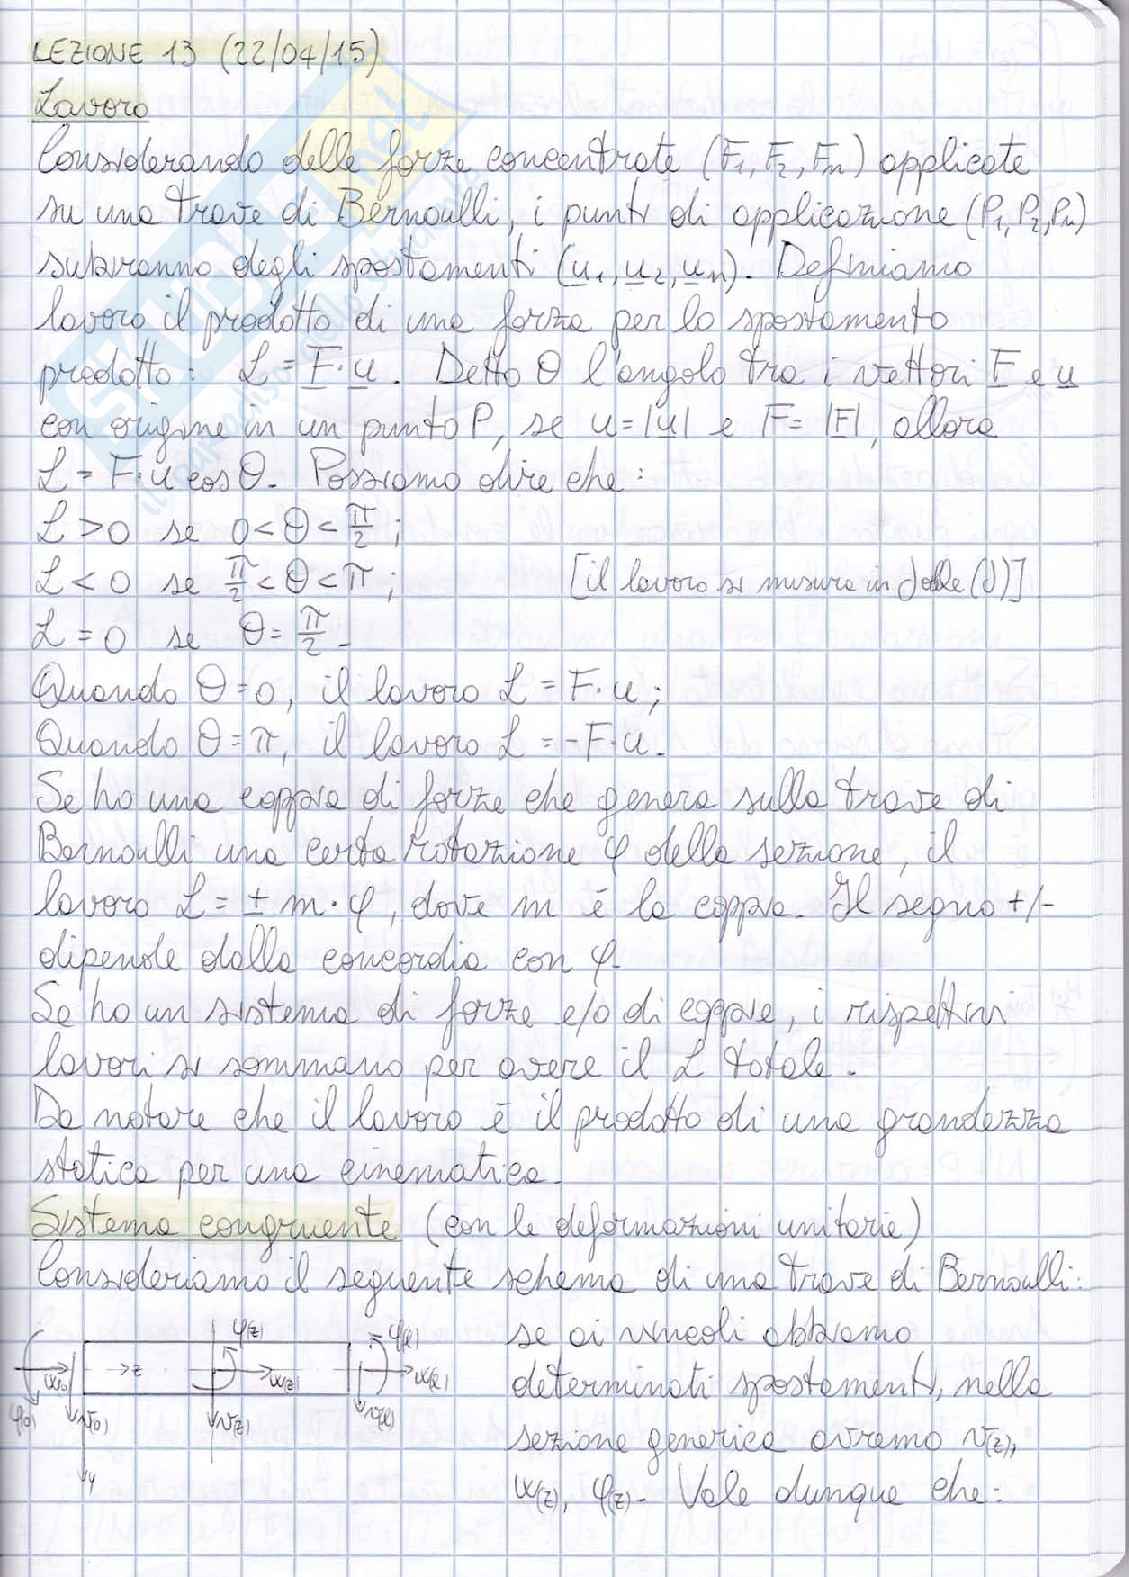 LEZIONE 13 (22/04/15)
Lavoro
Considerando delle forze concentrate (F₁, F₂, Fn) applicate
su una trave di Bernoulli, i punti di applicazione (P₁, P₂, Pn)
subiranno degli spostamenti (u₁, u₂, un). Definiamo
lavoro il prodotto di una forza per lo spostamento
prodotto: L = F · u. Detto θ l'angolo tra i vettori F e u
con origine in un punto P, se u = |u| e F = |F|, allora
L = F·u cosθ. Possiamo dire che:
L > 0 se 0 < θ < π/2;
L < 0 se π/2 < θ < π; [il lavoro si misura in Joule (J)]
L = 0 se θ = π/2.
Quando θ = 0, il lavoro L = F·u;
Quando θ = π, il lavoro L = -F·u.
Se ho una coppia di forze che genera sulla trave di
Bernoulli una certa rotazione φ della sezione, il
lavoro L = ± m · φ, dove m è la coppia. Il segno +/-
dipende dalla concordia con φ.
Se ho un sistema di forze e/o di coppie, i rispettivi
lavori si sommano per avere il L totale.
Da notare che il lavoro è il prodotto di una grandezza
statica per una cinematica.
Sistema congruente (con le deformazioni unitarie)
Consideriamo il seguente schema di una trave di Bernoulli:
se ai vincoli abbiamo
determinati spostamenti, nella
sezione generica avremo v(z),
w(z), φ(z). Vale dunque che:
φ(z) φ(l)
w(0) z w(z) w(l)
φ(0) v(0) v(z) v(l)
y
STUDENTI